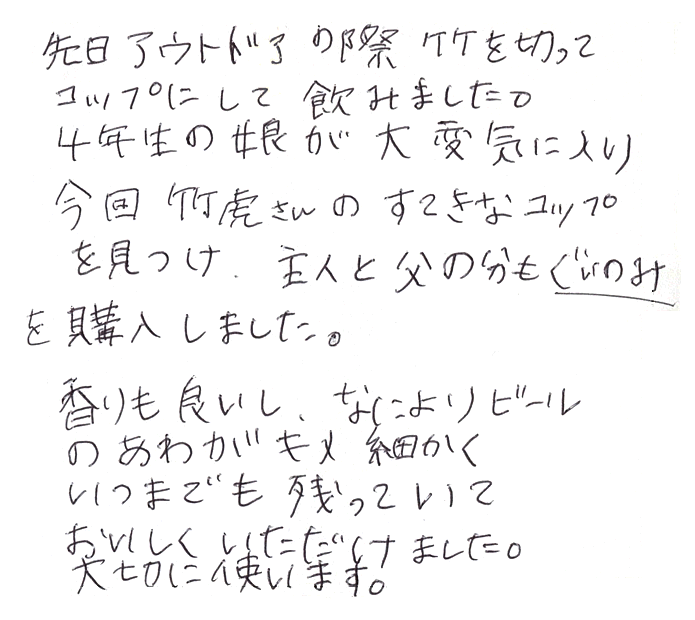 先日アウトドアの際 竹を切って
コップにして 飲みました。
4年生の娘が大変気に入り
今回 竹虎さんの すてきなコップ
を見つけ、主人と父の分もぐいのみ
を購入しました。
香りも良いし、なによりビール
のあわがキメ細かく
いつまでも残っていて
おいしくいただけました。
大切に使います。